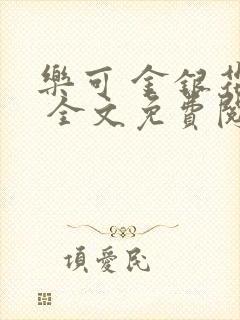 樂可 金銀花
全文免費閱
項愛民